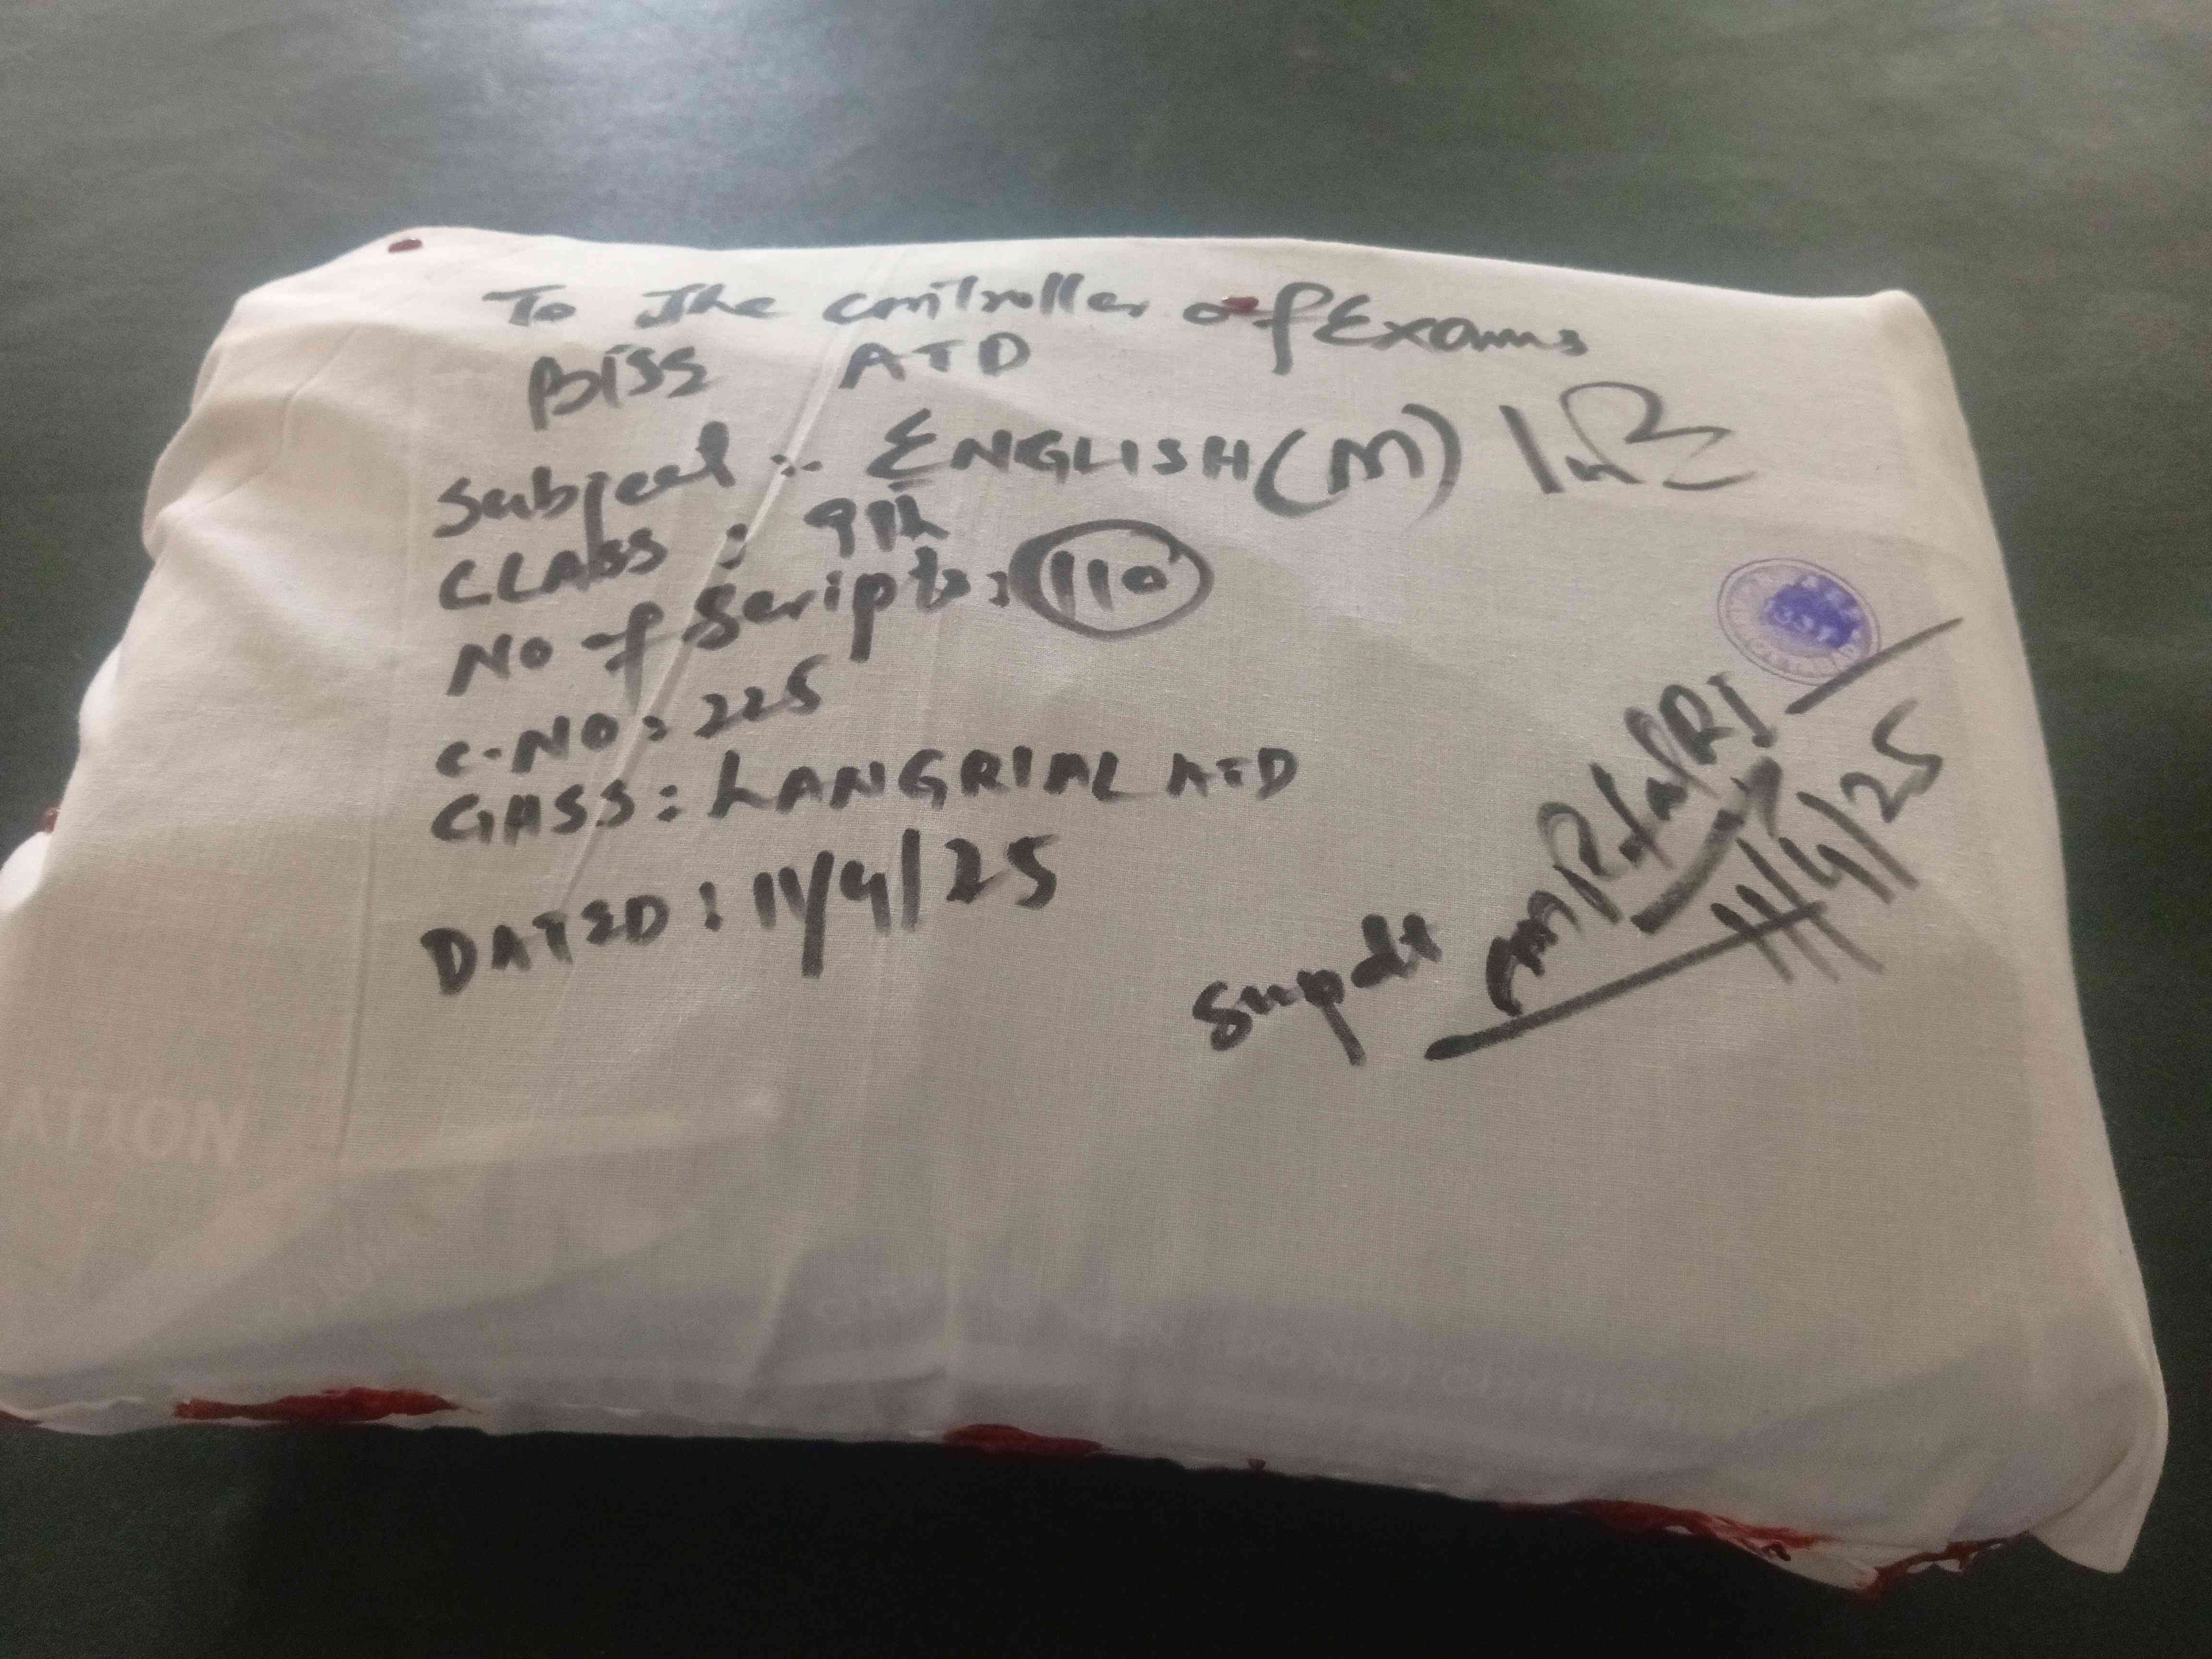 To The controller of Exams
BISS ATD
Subject :- ENGLISH (M)
CLASS : 9th
No of Scripts : 110
C.NO : 225
GHSS : LANGRIAL ATD
DATED : 11/4/25
Supdt
11/4/25
ATION